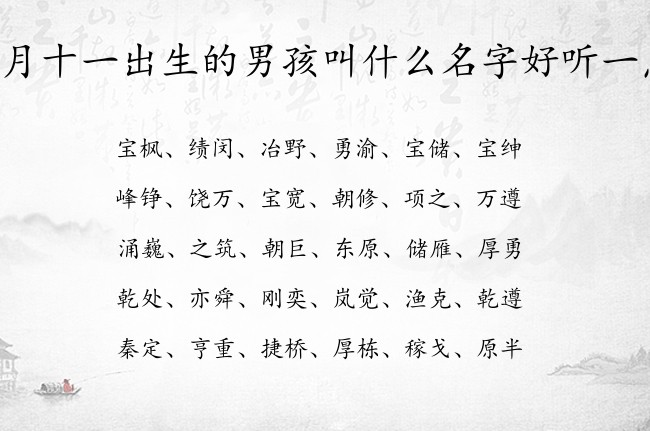 月十一出生的男孩叫什么名字好听一
宝枫、绩闵、冶野、勇渝、宝储、宝绅
峰铮、饶万、宝宽、朝修、项之、万遵
涌巍、之筑、朝巨、东原、储雁、厚勇
乾处、亦舜、刚奕、岚觉、渔克、乾遵
秦定、亨重、捷桥、厚栋、稼戈、原半